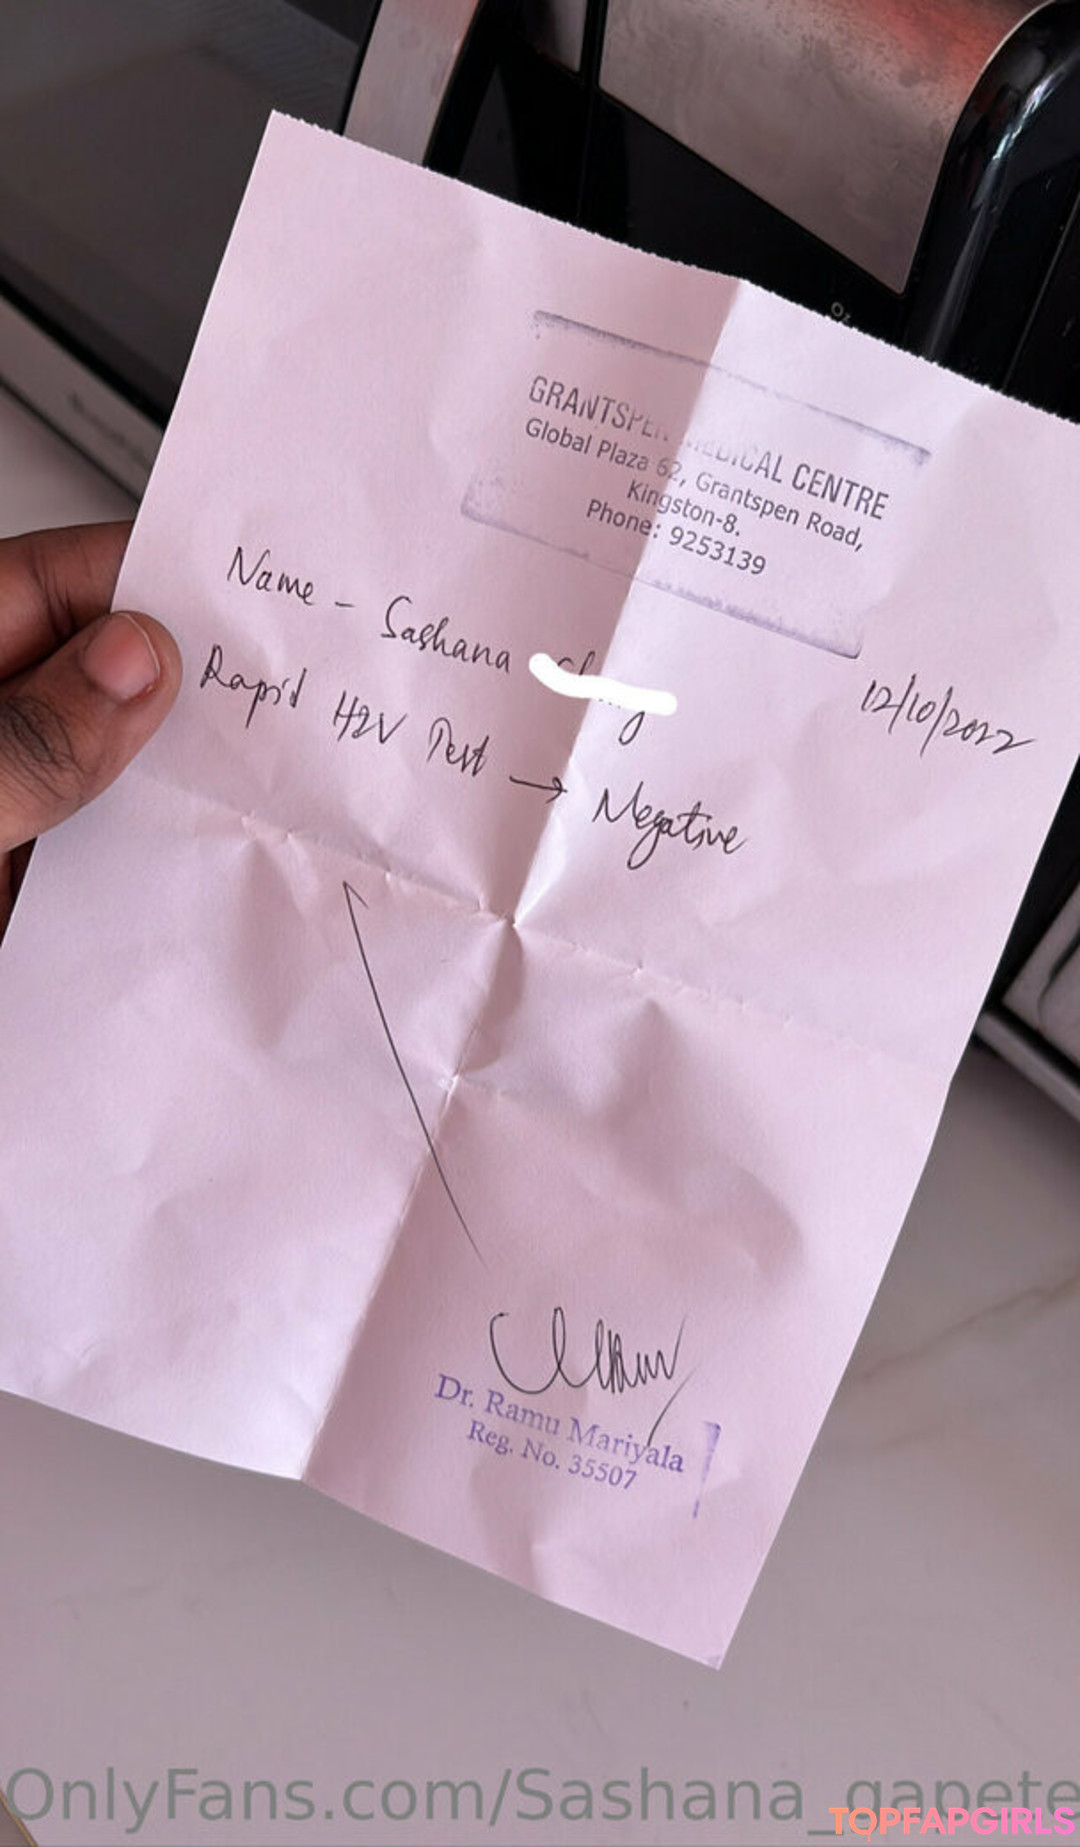 Oz
GRANTSPEN MEDICAL CENTRE
Global Plaza 62, Grantspen Road,
Kingston-8.
Phone: 9253139
Name - Sashana
12/10/2022
Rapid HIV Test → Negative
Dr. Ramu Mariyala
Reg. No. 35507
OnlyFans.com/Sashana_gapete
TOPFAPGIRLS